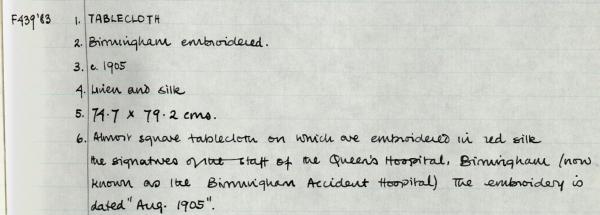 F439'83 1. TABLECLOTH
2. Birmingham embroidered.
3. c. 1905
4. Linen and silk
5. 74.7 x 79.2 cms.
6. Almost square tablecloth on which are embroidered in red silk
the signatures of the staff of the Queen's Hospital, Birmingham (now
known as the Birmingham Accident Hospital) The embroidery is
dated "Aug. 1905".